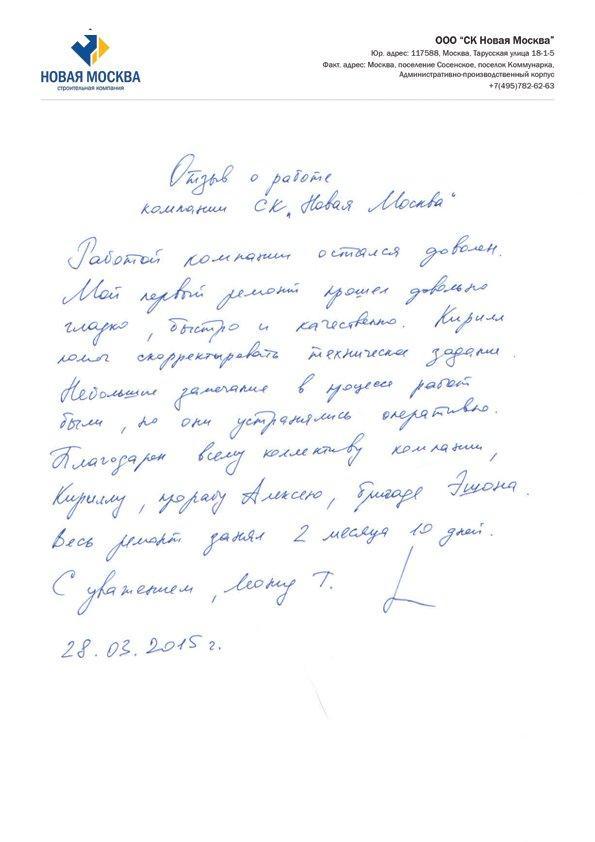 НОВАЯ МОСКВА
строительная компания
ООО "СК Новая Москва"
Юр. адрес: 117588, Москва, Тарусская улица 18-1-5
Факт. адрес: Москва, поселение Сосенское, поселок Коммунарка,
Административно-производственный корпус
+7(495)782-62-63
Отзыв о работе
компании СК „Новая Москва"
Работой компании остался доволен.
Мой первый ремонт прошел довольно
гладко, быстро и качественно. Кирилл
помог скорректировать техническое задание.
Небольшие замечания в процессе работ
были, но они устранялись оперативно.
Благодарен всему коллективу компании,
Кириллу, прорабу Алексею, бригаде Эшона.
Весь ремонт занял 2 месяца 10 дней.
С уважением, Леонид Т.
28.03.2015 г.